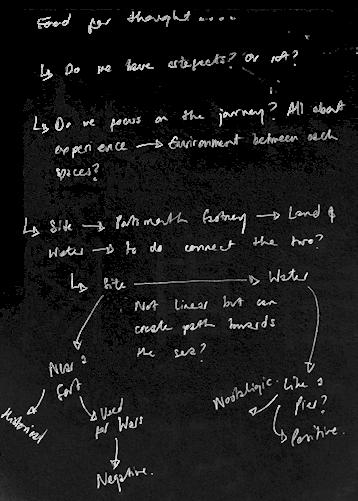 Food for thought....
↳ Do we have artefacts? Or not?
↳ Do we focus on the journey? All about
experience → Environment between each
spaces?
↳ Site → Portsmouth Eastney → Land &
Water → to do connect the two?
↳ Site → Water
Not linear but can
create path towards
the sea?
Near a
Fort
Historical
Used
for Wars
Negative.
Like a
Pier?
Nostalgic.
Positive.